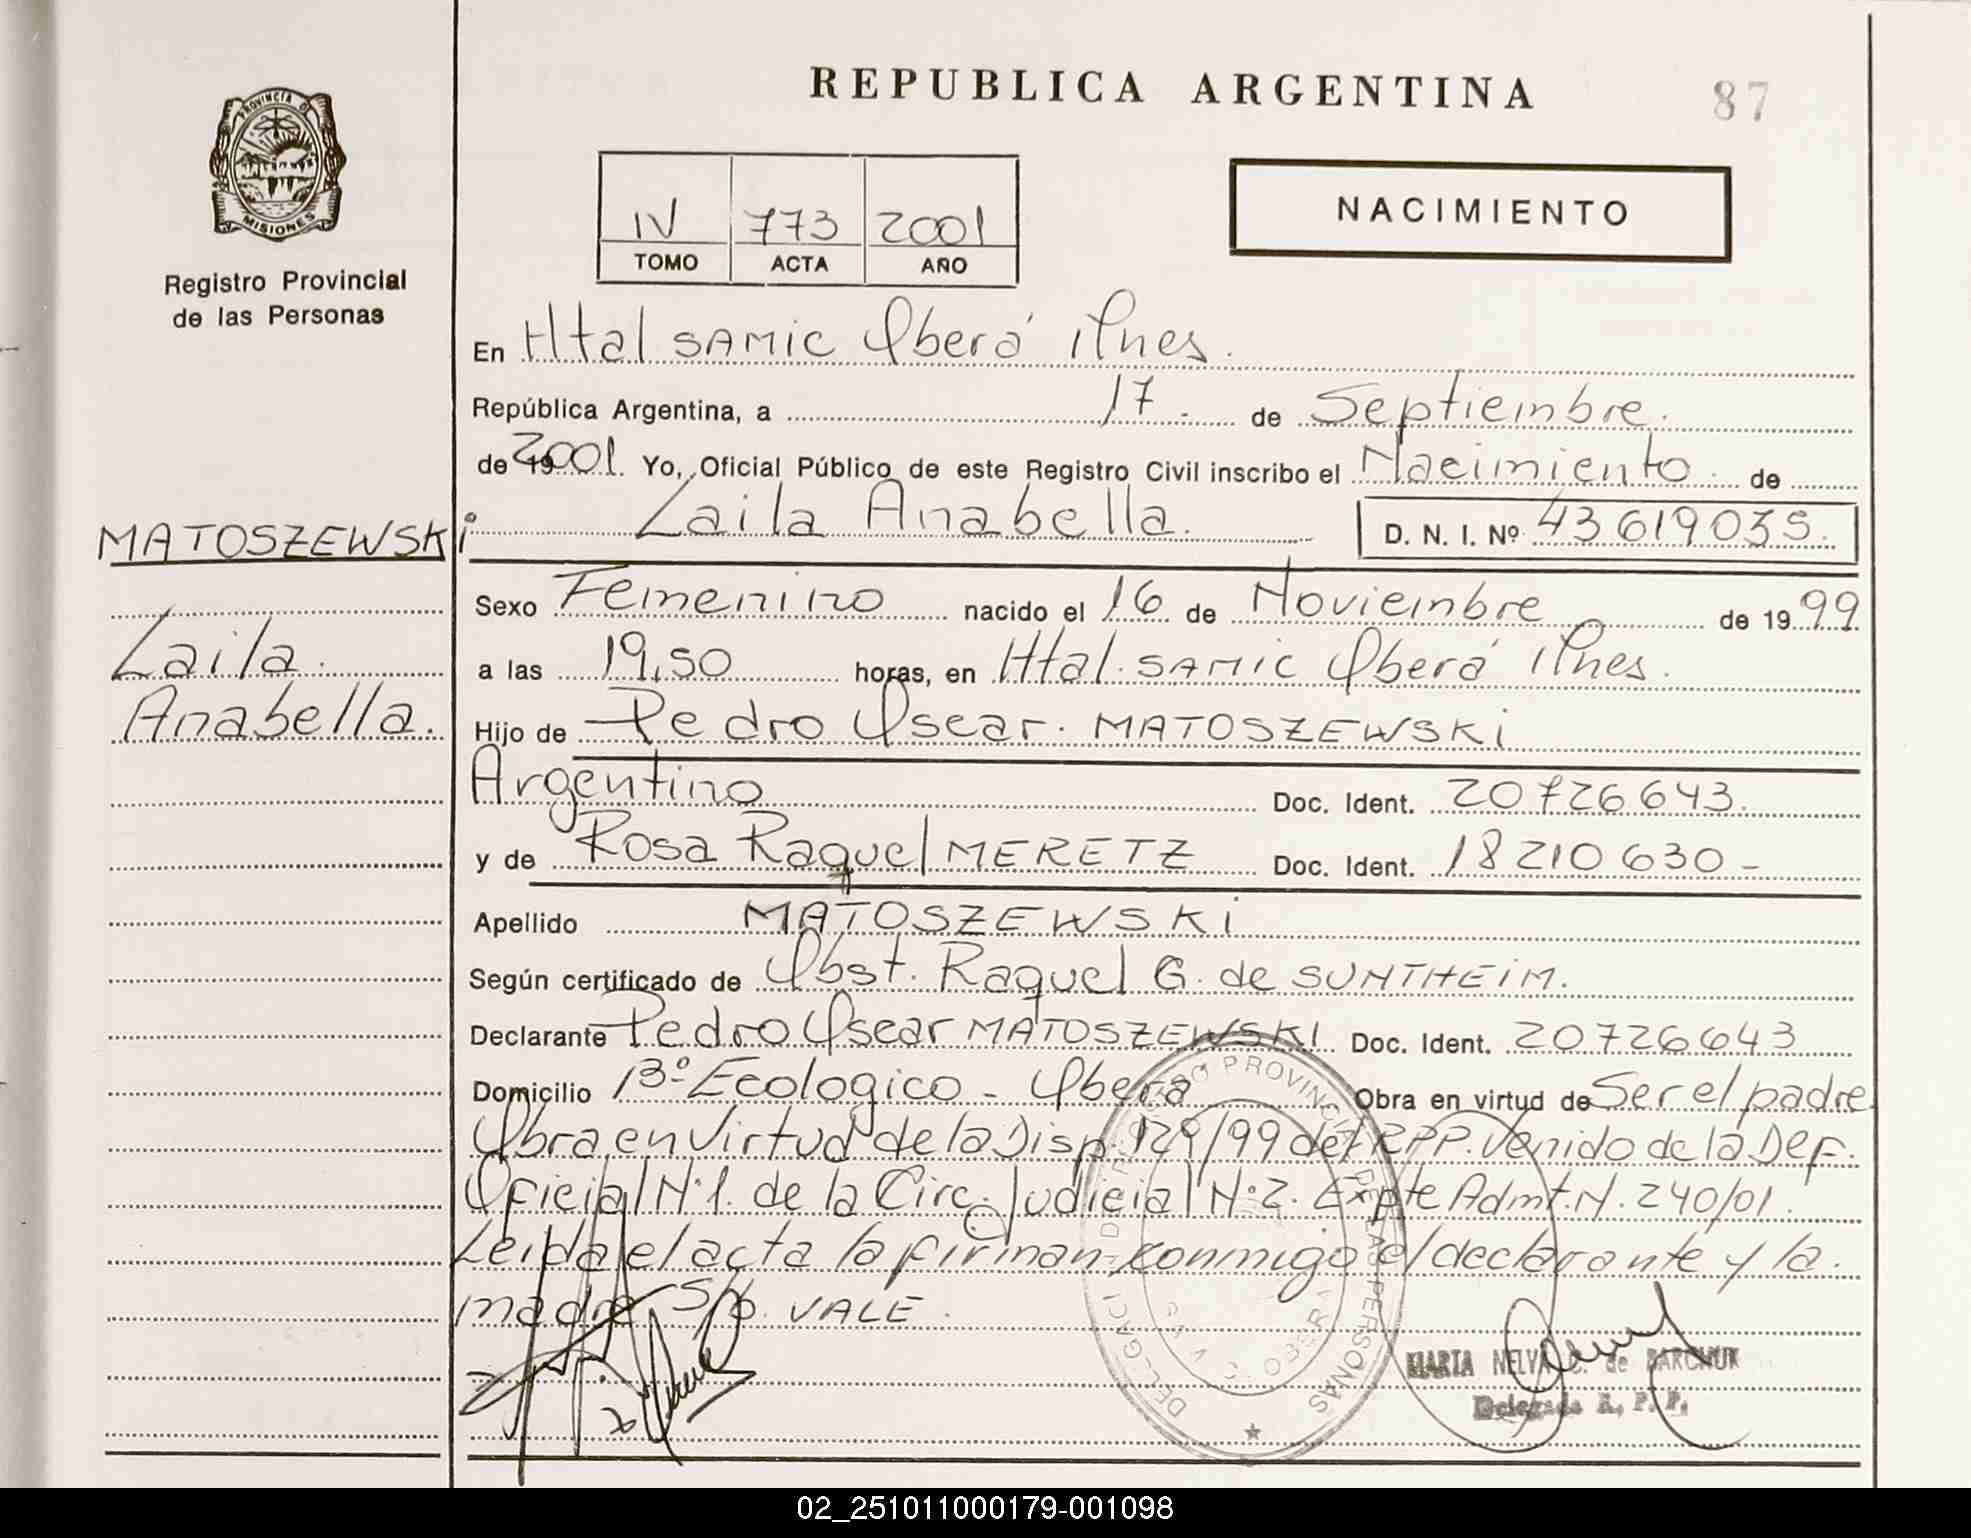 REPUBLICA ARGENTINA
87
PROVINCIA DE
MISIONES
Registro Provincial
de las Personas
IV 773 2001
TOMO ACTA AÑO
NACIMIENTO
En Htal SAMIC Oberá Mnes.
República Argentina, a 17. de Septiembre.
de 19 2001. Yo, Oficial Público de este Registro Civil inscribo el Nacimiento. de
MATOSZEWSKi
Laila Anabella. D. N. I. Nº 43619035.
Sexo Femenino nacido el 16 de Noviembre de 1999
Laila.
Anabella.
a las 19,50 horas, en Htal. SAMIC Oberá Mnes.
Hijo de Pedro Oscar. MATOSZEWSKi
Argentino Doc. Ident. 20726643.
y de Rosa Raquel MERETZ Doc. Ident. 18210630-
Apellido MATOSZEWSKi
Según certificado de Obst. Raquel G. de SUNTHEiM.
Declarante Pedro Oscar MATOSZEWSKI Doc. Ident. 20726643
Domicilio Bº Ecologico - Obera Obra en virtud de Ser el padre
Obra en Virtud de la Disp. 129/99 del RPP. Venido de la Def.
Oficial N.1. de la Circ. Judicial N.2. Expte Admt. N. 240/01.
Leida el acta la firman conmigo el declarante y la.
madre S/p. VALE.
REGISTRO PROVINCIAL DE LAS PERSONAS
OBERA
MARTA NELVA C. de BARCHUK
Delegada R. P. P.
02_251011000179-001098